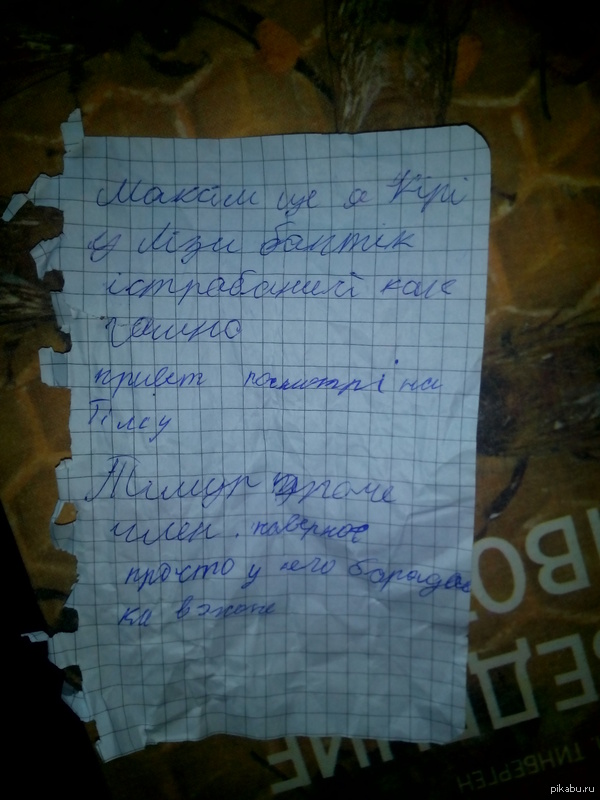 Максім це я Кірі
у Лізи бантік
істрабаний как
гамно
привєт посмотрі на
Тіму
Тімур дрюче
член. наверноє
просто у него барадав
ка в жопе
ВЕДЕНИЕ
. ТИНБЕРГЕН
pikabu.ru